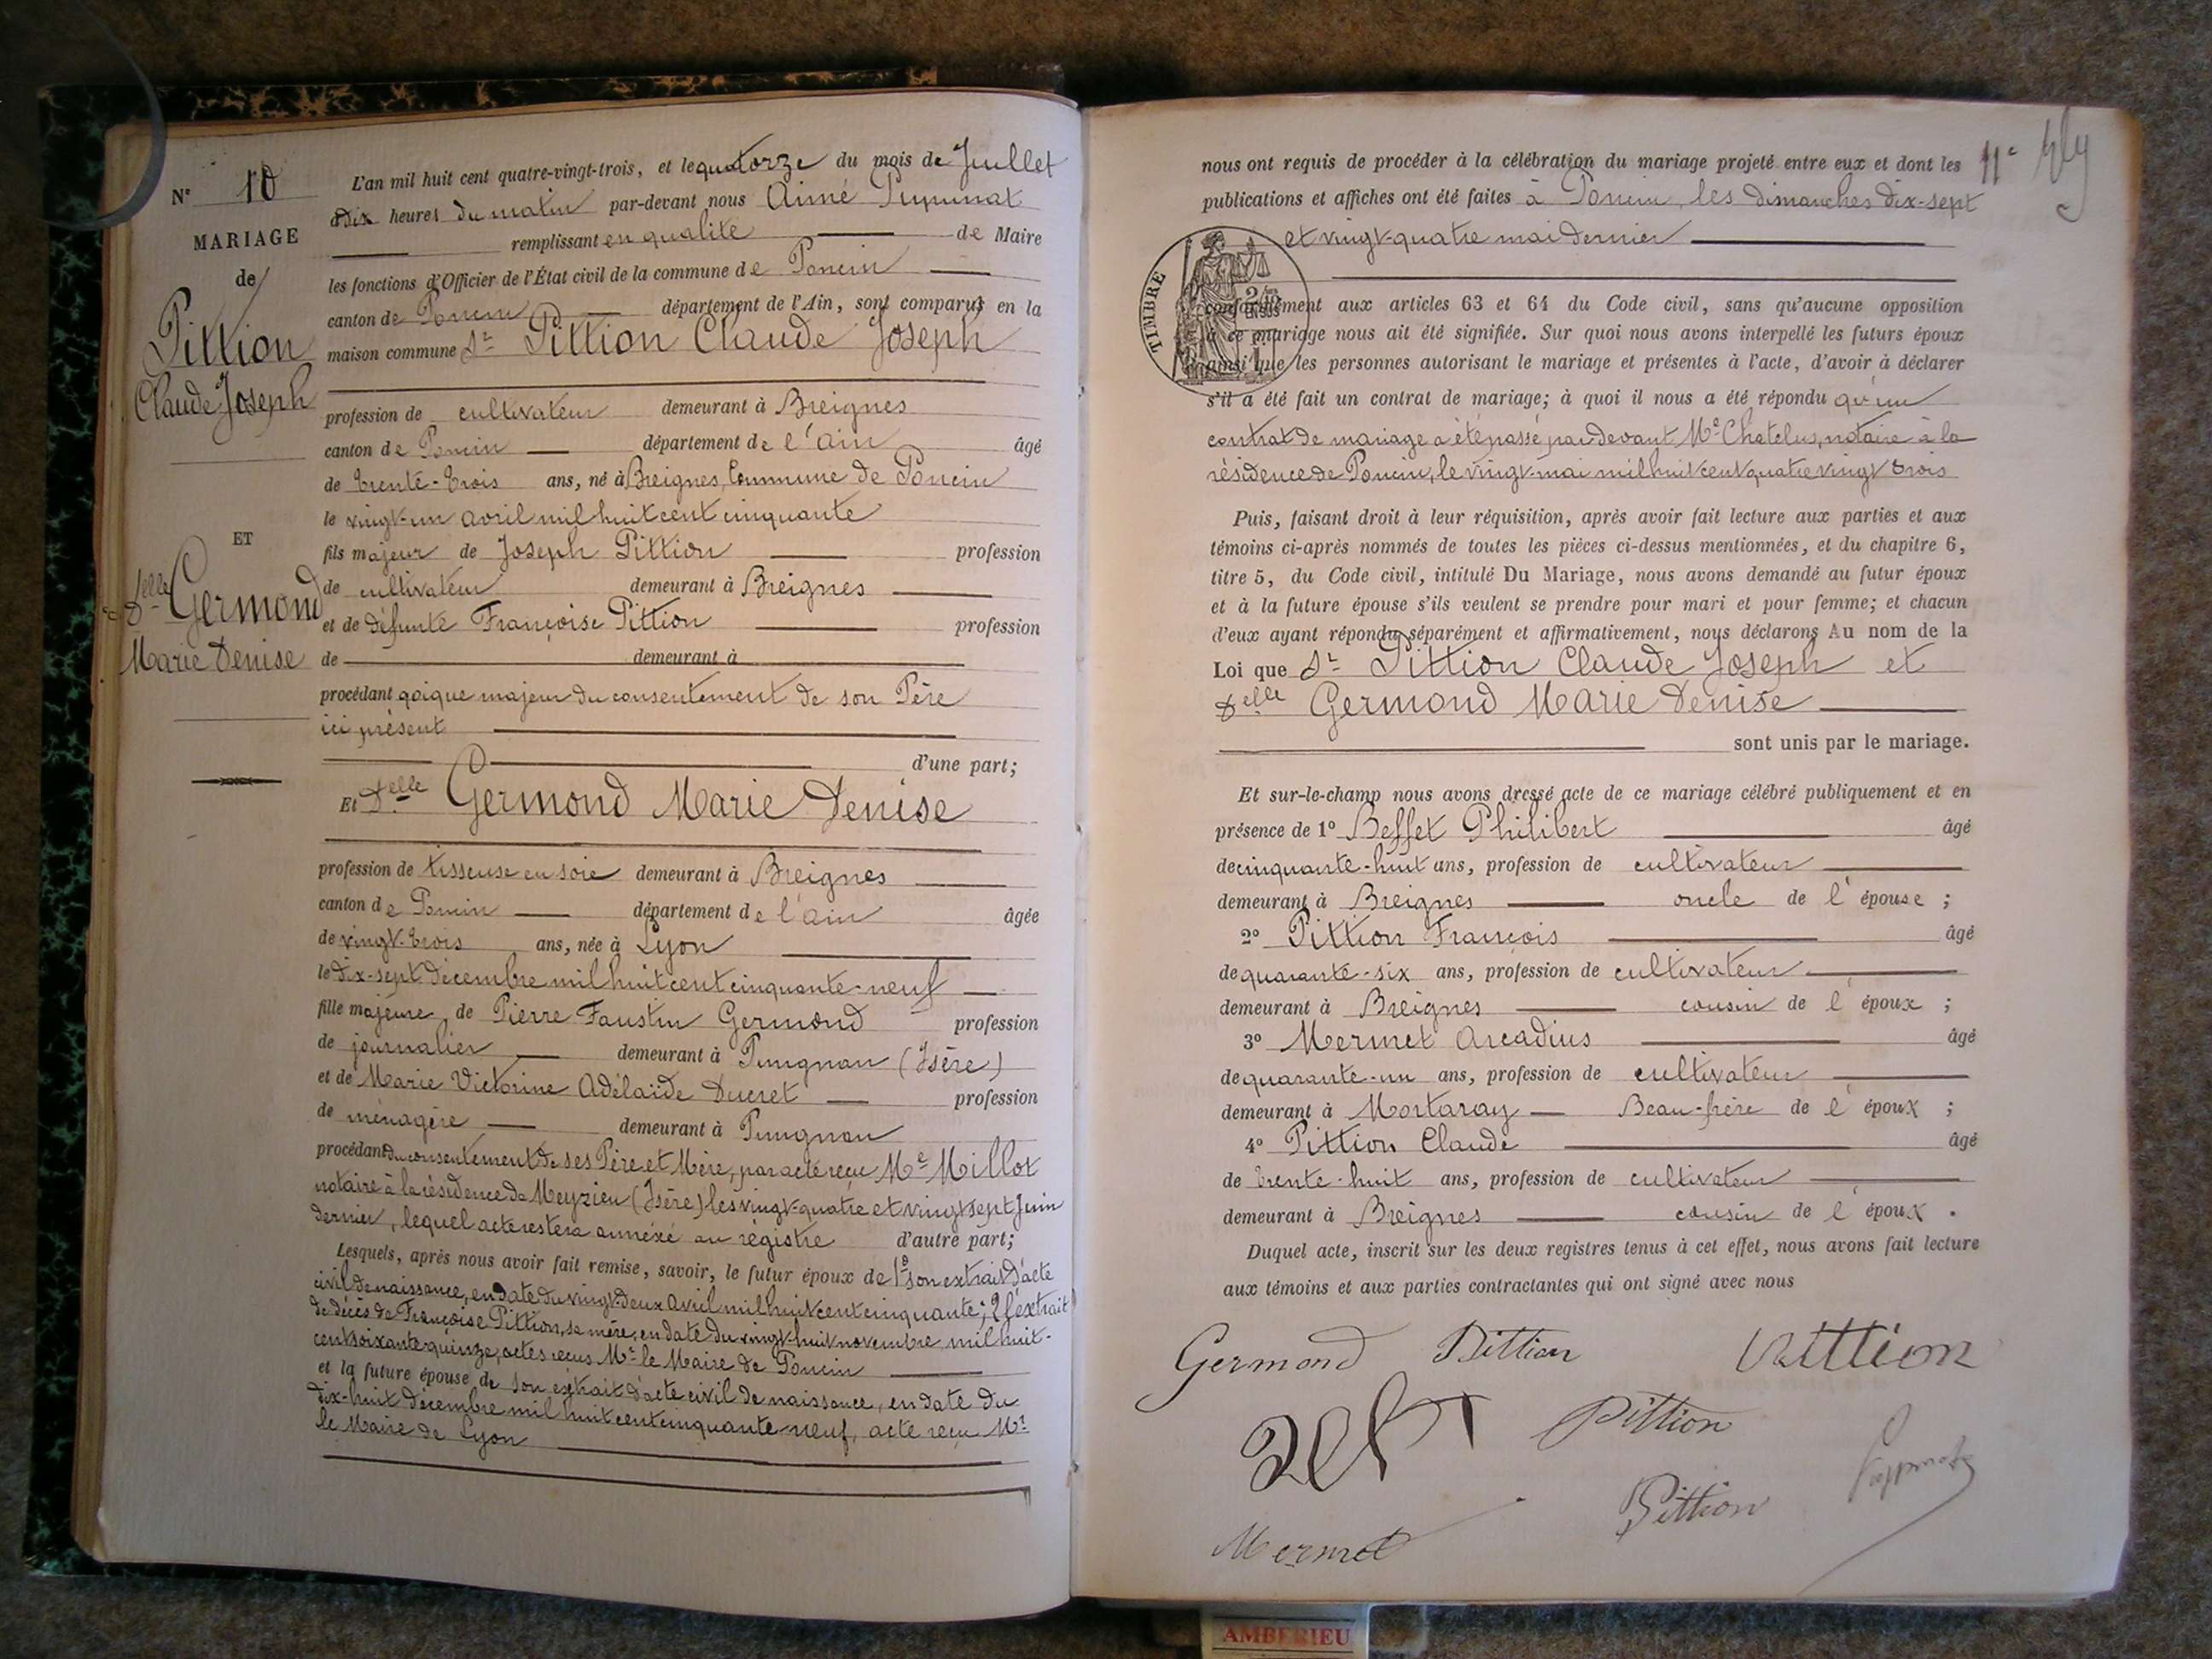 N° 10
MARIAGE
de
Pittion
Claude Joseph
ET
Delle Germond
Marie Denise
L'an mil huit cent quatre-vingt-trois, et le quatorze du mois de Juillet
à dix heures du matin par-devant nous Aimé
remplissant en qualité de Maire
les fonctions d'Officier de l'État civil de la commune de Poncin
canton de Poncin département de l'Ain, sont comparus en la
maison commune Sr Pittion Claude Joseph
profession de cultivateur demeurant à Breignes
canton de Poncin département de l'ain âgé
de trente-trois ans, né à Breignes, Commune de Poncin
le vingt-un avril mil huit cent cinquante
fils majeur de Joseph Pittion profession
de cultivateur demeurant à Breignes
et de défunte Françoise Pittion profession
de demeurant à
procédant qoique majeur du consentement de son Père
ici présent
d'une part;
Et Delle Germond Marie Denise
profession de tisseuse en soie demeurant à Breignes
canton de Poncin département de l'ain âgée
de vingt-trois ans, née à Lyon
le dix-sept décembre mil huit cent cinquante-neuf
fille majeure de Pierre Faustin Germond profession
de journalier demeurant à (Isère)
et de Marie Victorine Adélaïde Ducret profession
de ménagère demeurant à
procédant du consentement de ses Père et Mère, par acte reçu Me Millot
notaire à la résidence de Meyzieu (Isère) les vingt-quatre et vingt sept Juin
dernier, lequel acte restera annéxé au régistre d'autre part;
Lesquels, après nous avoir fait remise, savoir, le futur époux de 1° son extrait d'acte
civil de naissance, en date du vingt-deux avril mil huit cent cinquante; 2° l'extrait
de décès de Françoise Pittion, sa mère, en date du vingt-huit novembre mil huit-
cent soixante quinze, actes reçus Mr le Maire de Poncin
et la future épouse de son extrait d'acte civil de naissance, en date du
dix-huit décembre mil huit cent cinquante-neuf, acte reçu Mr
le Maire de Lyon
nous ont requis de procéder à la célébration du mariage projeté entre eux et dont les
publications et affiches ont été faites à Poncin, les dimanches dix-sept
et vingt-quatre mai dernier
TIMBRE
conformément aux articles 63 et 64 du Code civil, sans qu'aucune opposition
à ce mariage nous ait été signifiée. Sur quoi nous avons interpellé les futurs époux
ainsi que les personnes autorisant le mariage et présentes à l'acte, d'avoir à déclarer
s'il a été fait un contrat de mariage; à quoi il nous a été répondu qu'un
contrat de mariage a été passé par devant Me Chatelus, notaire à la
résidence de Poncin, le vingt-mai mil huit cent quatre vingt trois
Puis, faisant droit à leur réquisition, après avoir fait lecture aux parties et aux
témoins ci-après nommés de toutes les pièces ci-dessus mentionnées, et du chapitre 6,
titre 5, du Code civil, intitulé Du Mariage, nous avons demandé au futur époux
et à la future épouse s'ils veulent se prendre pour mari et pour femme; et chacun
d'eux ayant répondu séparément et affirmativement, nous déclarons Au nom de la
Loi que Sr Pittion Claude Joseph et
Delle Germond Marie Denise
sont unis par le mariage.
Et sur-le-champ nous avons dressé acte de ce mariage célébré publiquement et en
présence de 1° Beffet Philibert âgé
de cinquante-huit ans, profession de cultivateur
demeurant à Breignes oncle de l'épouse ;
2° Pittion François âgé
de quarante-six ans, profession de cultivateur
demeurant à Breignes cousin de l'époux ;
3° Mermet Arcadius âgé
de quarante-un ans, profession de cultivateur
demeurant à Mortaray Beau-frère de l'époux ;
4° Pittion Claude âgé
de trente-huit ans, profession de cultivateur
demeurant à Breignes cousin de l'époux .
Duquel acte, inscrit sur les deux registres tenus à cet effet, nous avons fait lecture
aux témoins et aux parties contractantes qui ont signé avec nous
Germond Pittion Pittion
Pittion
Pittion
Mermet
AMBERIEU